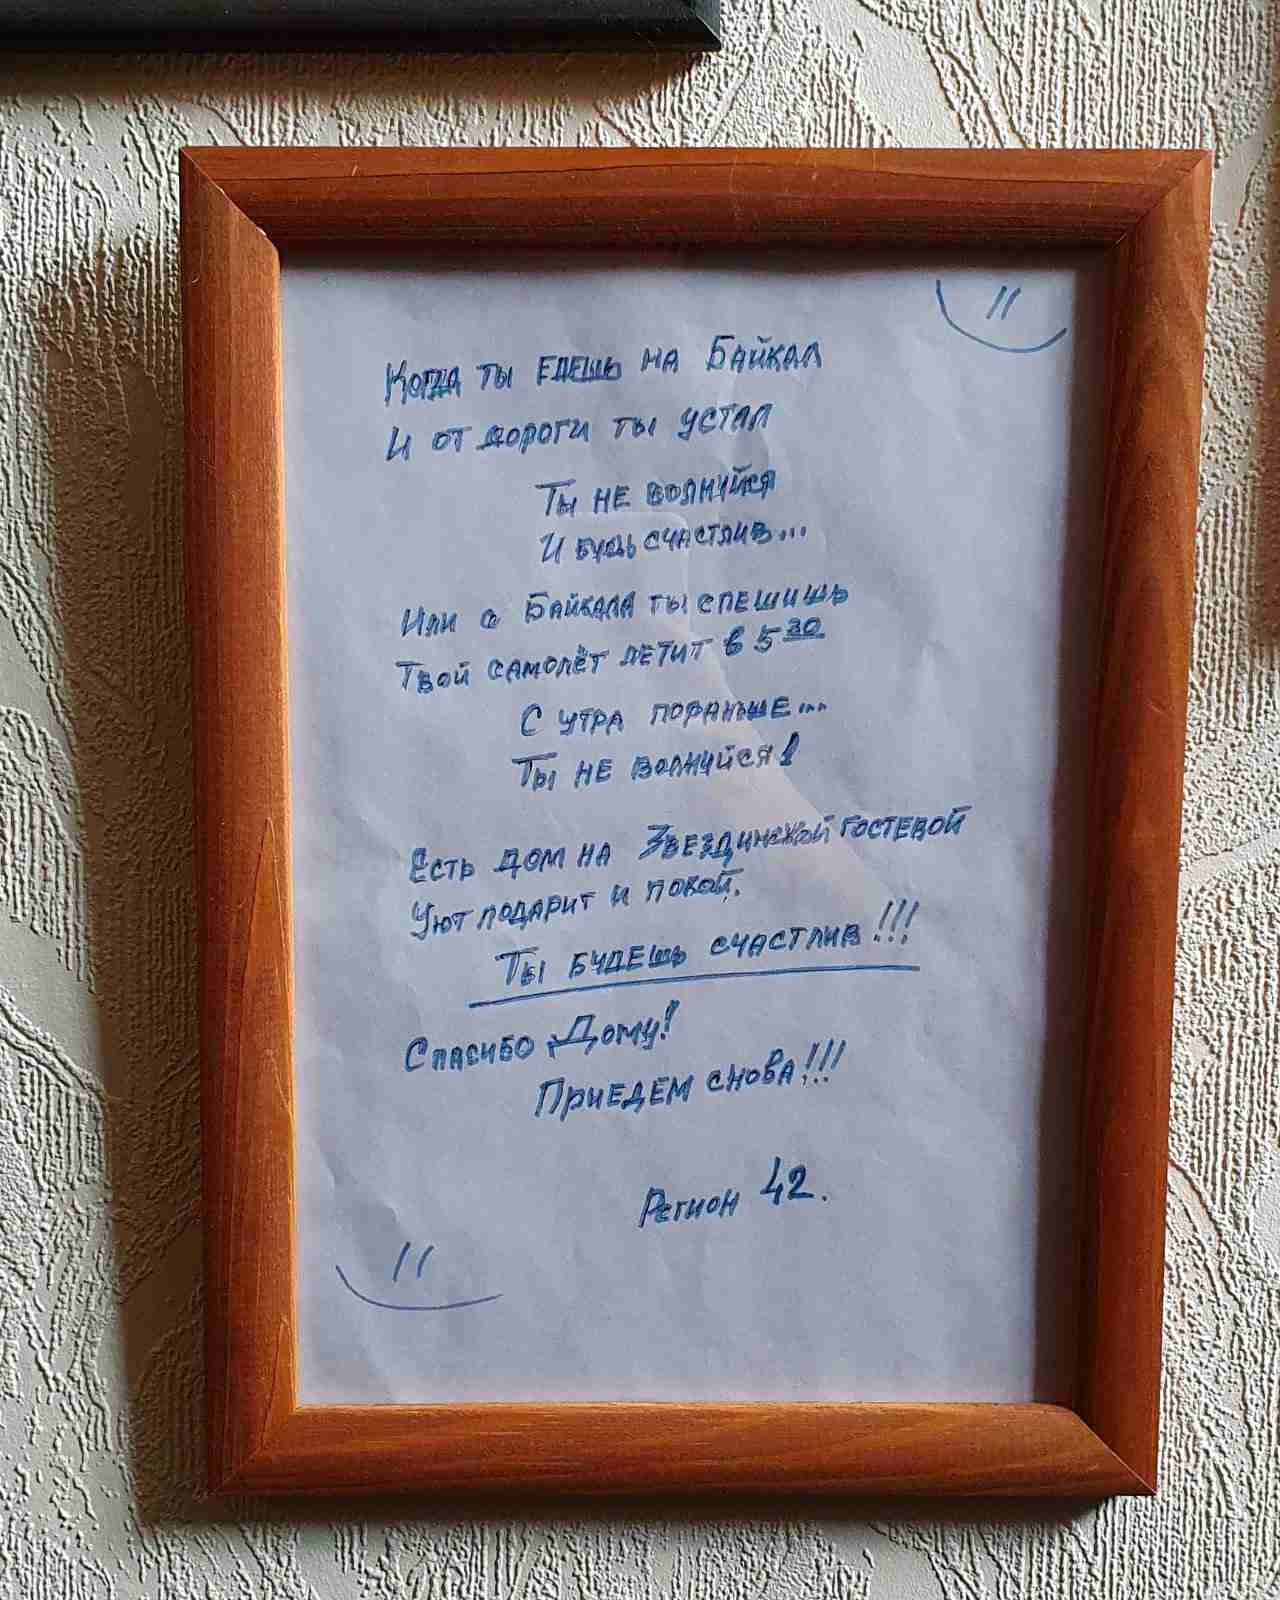 Когда ты едешь на Байкал
И от дороги ты устал
Ты не волнуйся
И будь счастлив...
Или с Байкала ты спешишь
Твой самолёт летит в 5 30
С утра пораньше...
Ты не волнуйся!
Есть дом на Звездинской гостевой
Уют подарит и покой.
Ты будешь счастлив!!!
Спасибо Дому!
Приедем снова!!!
Регион 42.